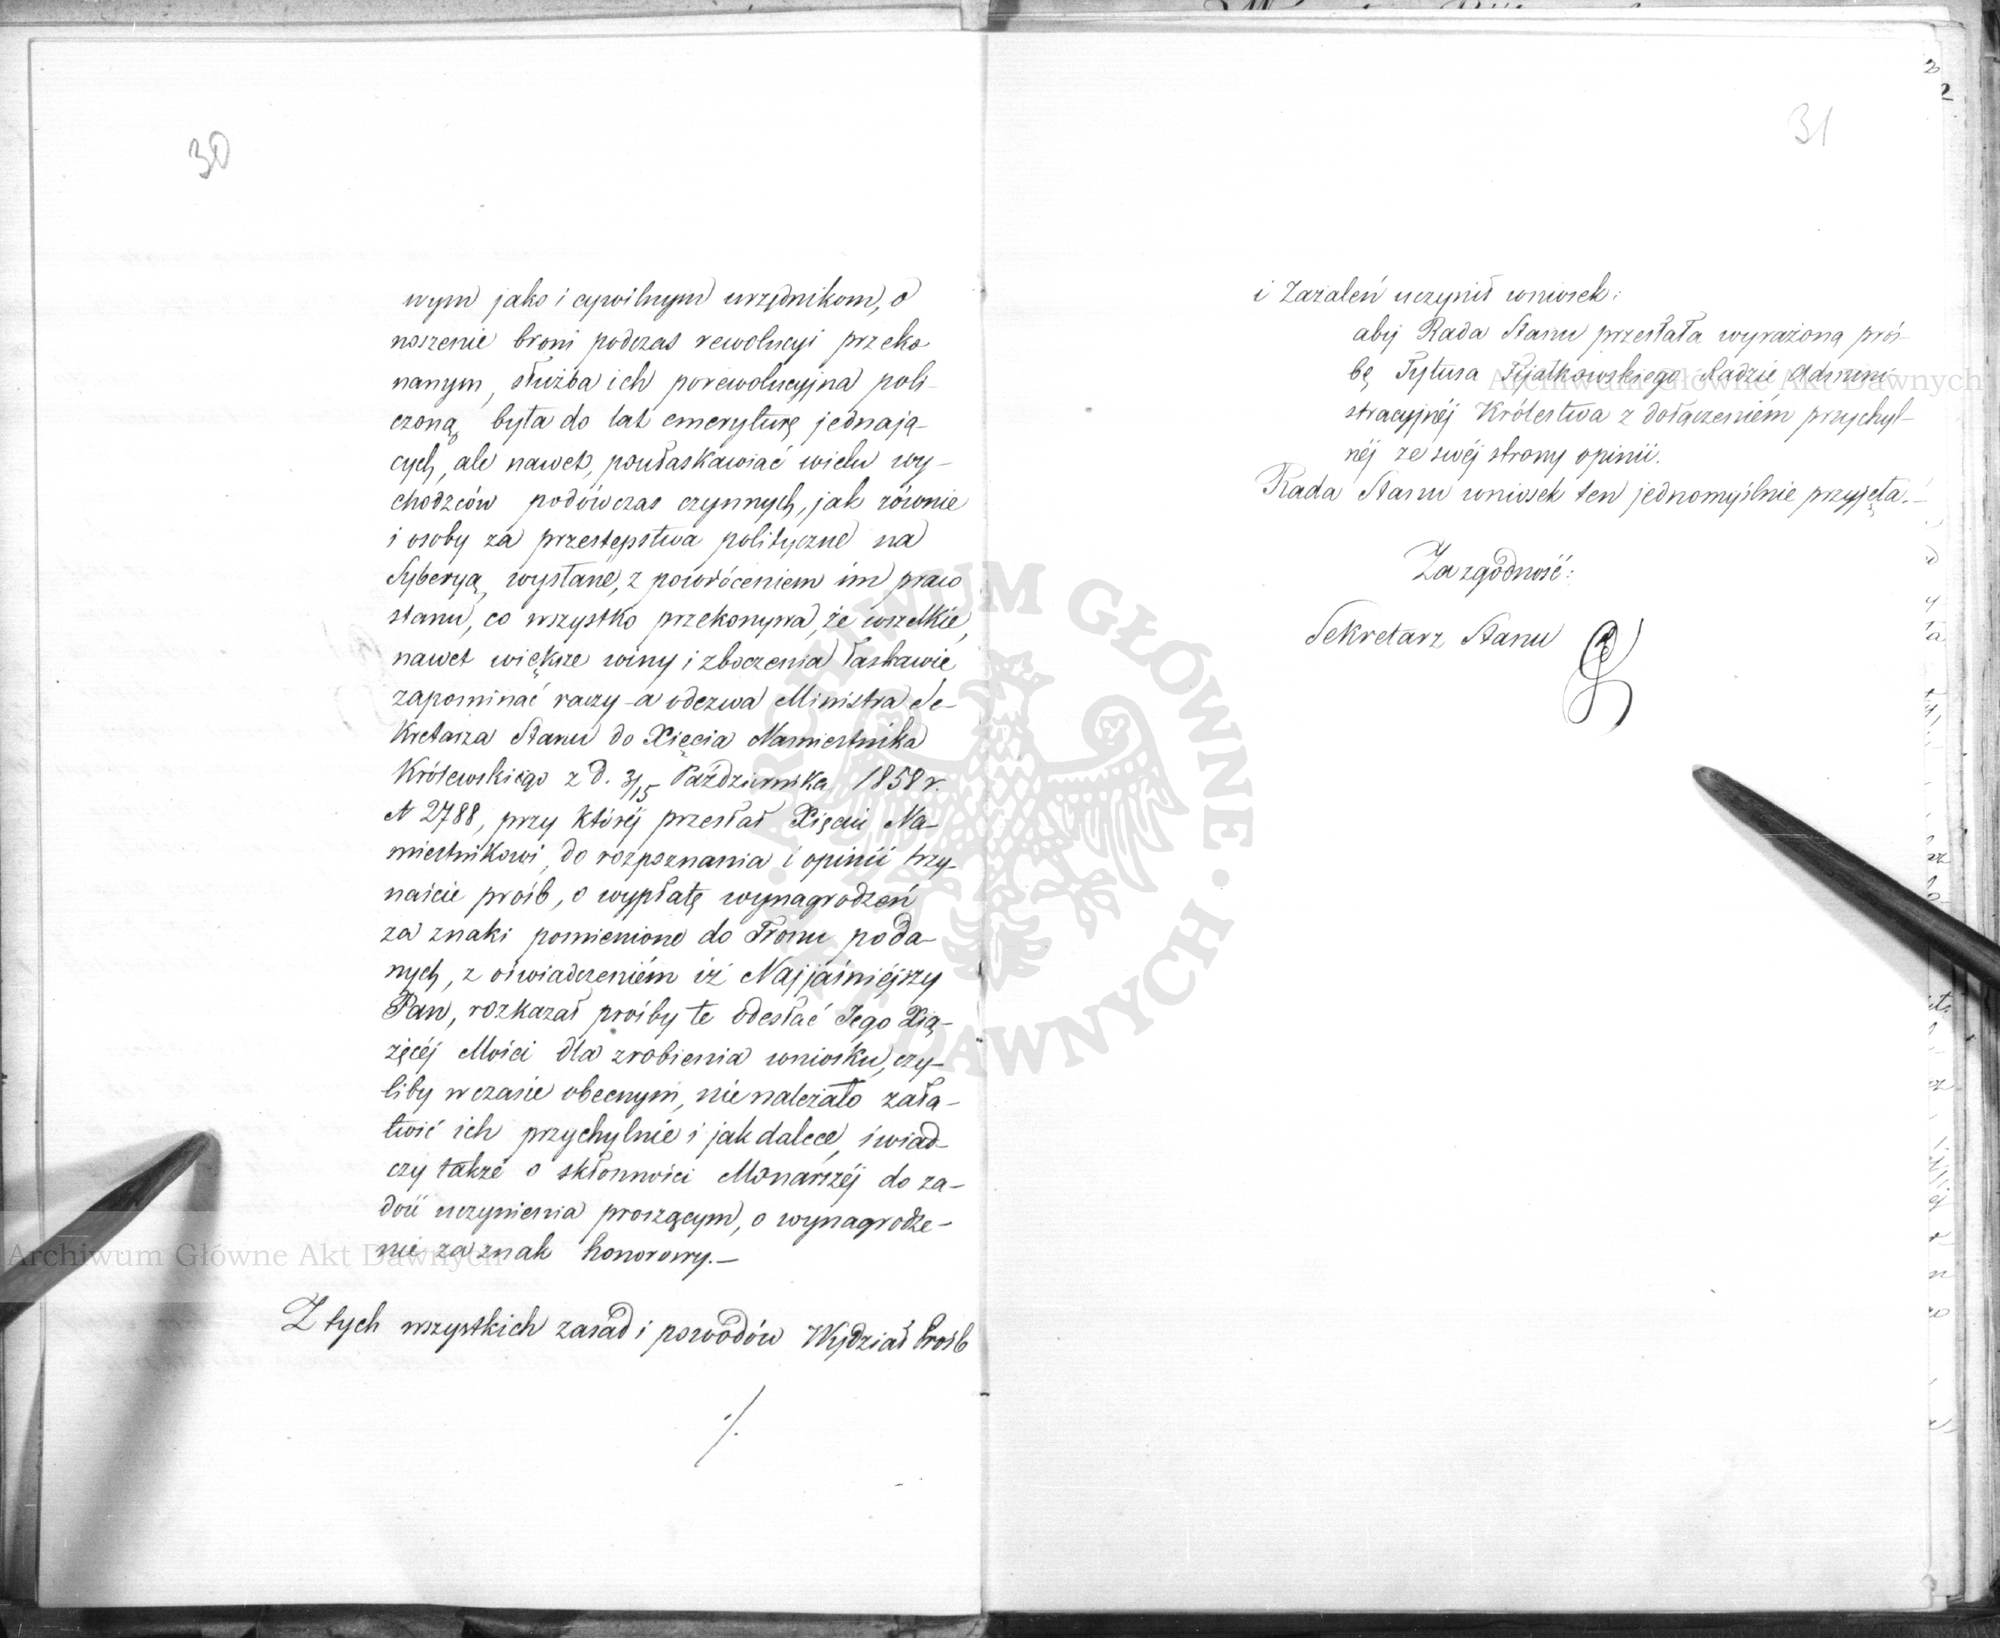 30
wym jako i cywilnym urzędnikom, o
noszenie broni podczas rewolucyi przeko
nanym, służba ich porewolucyjna poli-
czoną była do lat emeryturę jednają-
cych, ale nawet, poułaskawiać wielu wy-
chodzców podówczas czynnych, jak równie
i osoby za przestępstwa polityczne na
Syberyą, wysłane, z powróceniem im praw
stanu, co wszystko przekonywa, że wszelkie,
nawet większe winy i zboczenia łaskawie
zapominać raczy - a odezwa Ministra Se-
kretarza Stanu do Xięcia Namiestnika
Królewskiego z d. 3/15 Października 1858 r.
N 2788, przy któréj przesłał Xięciu Na-
miestnikowi, do rozpoznania i opinii trzy-
naście prośb, o wypłatę wynagrodzeń
za znaki pomienione do Tronu poda-
nych, z oświadczeniém iż Najjaśniéjszy
Pan, rozkazał prośby te odesłać Jego Xią-
żęcéj Mości dla zrobienia wniosku, czy-
liby w czasie obecnym, nie należało zała-
twić ich przychylnie i jak dalece, świad-
czy także o skłonności Monarszéj do za-
dość uczynienia proszącym, o wynagrodze-
nie za znak honorowy.-
Z tych wszystkich zasad i powodów Wydział Prośb
./.
31
i Zażaleń uczynił wniosek:
aby Rada Stanu przesłała wyrażoną proś-
bę Tytusa Fijałkowskiego Radzie Admini-
stracyjnéj Królestwa z dołączeniém przychyl-
néj ze swéj strony opinii.
Rada Stanu wniosek ten jednomyślnie przyjęła.-
Za zgodność:
Sekretarz Stanu
ARCHIWUM GŁÓWNE AKT DAWNYCH
Archiwum Główne Akt Dawnych
Archiwum Główne Akt Dawnych